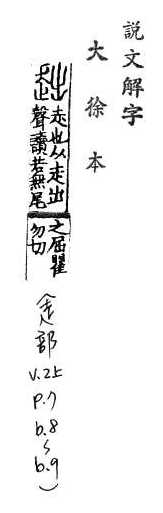 說文解字
大徐本
走也从走出
聲讀若無尾
之屈瞿
勿切
(走部
v.2上
p.7
b.8
~
b.9)